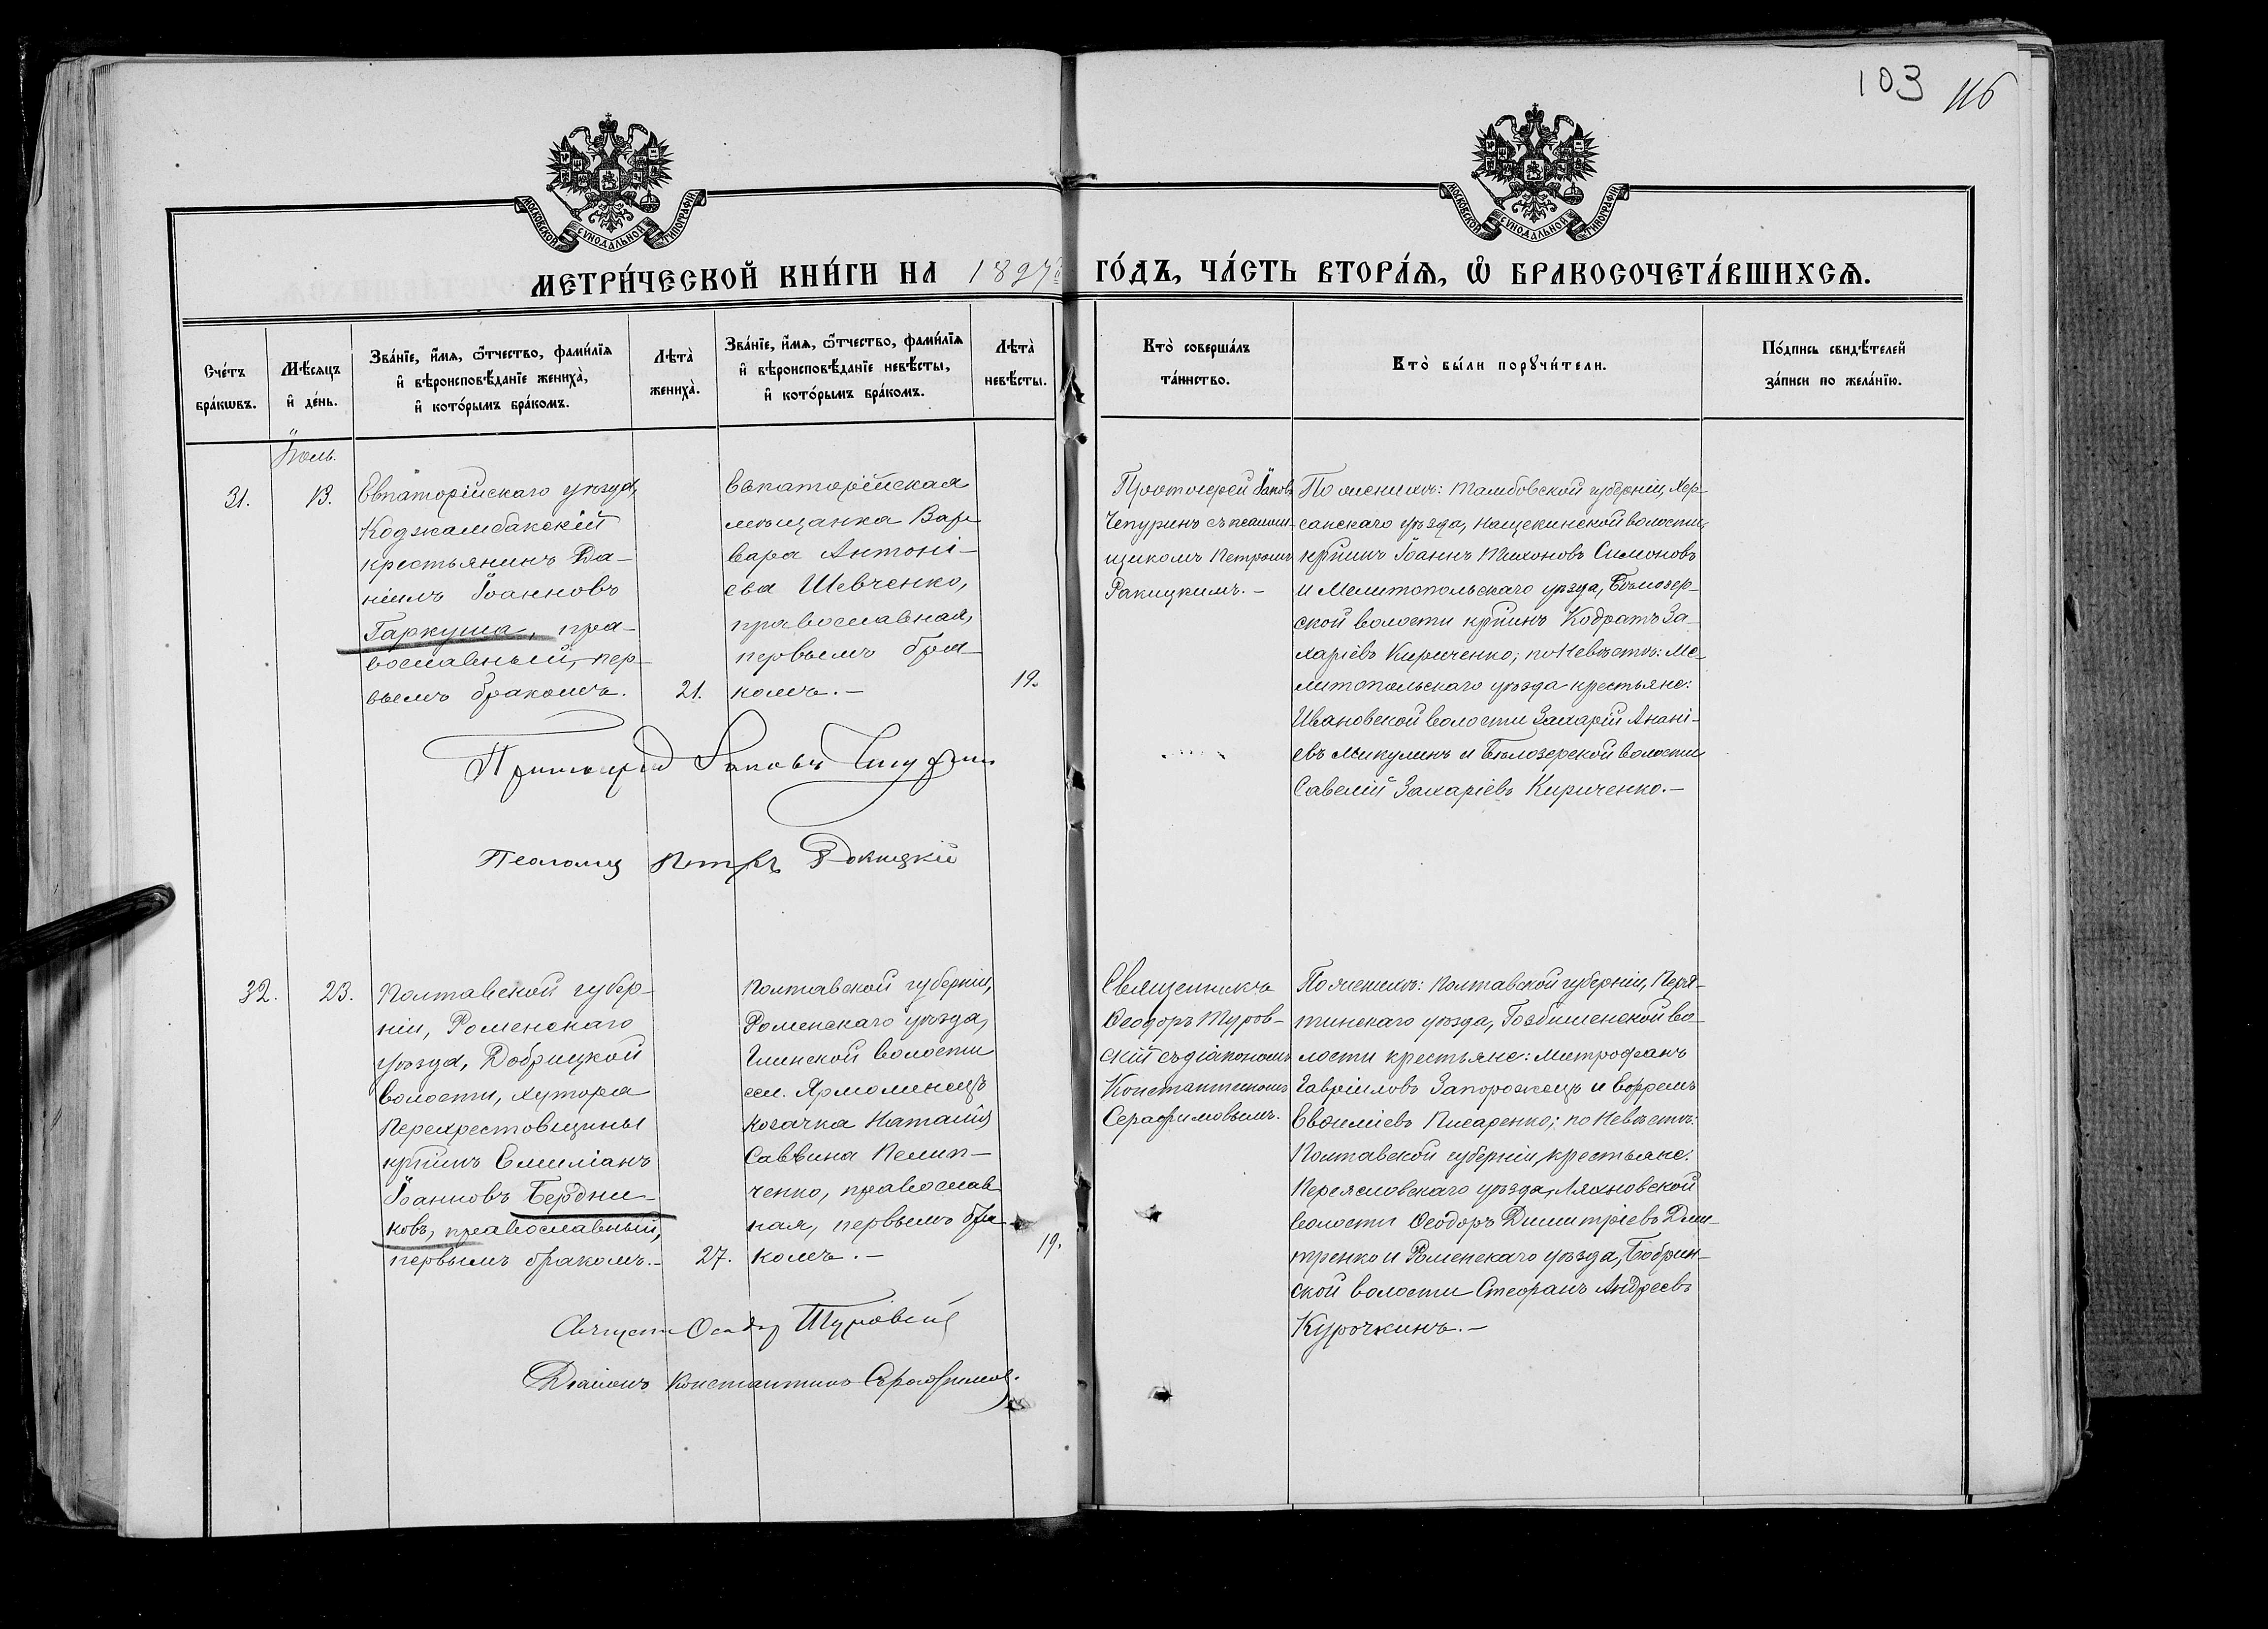 103 116
МОСКОВСКОЙ СѴНОДАЛЬНОЙ ТИПОГРАФІИ.
МОСКОВСКОЙ СѴНОДАЛЬНОЙ ТИПОГРАФІИ.
МЕТРИ́ЧЕСКОЙ КНИ́ГИ НА 1897й ГО́ДЪ, ЧА́СТЬ ВТОРА́Ѧ, Ѽ БРАКОСОЧЕТА́ВШИХСѦ.
Сче́тъ
бра́кѡвъ.
Мѣ́сѧцъ
и҆ де́нь.
Зва́нїе, и҆́мѧ, ѻ҆́тчество, фами́лїѧ
и҆ вѣроисповѣ́данїе жениха̀,
и҆ кото́рымъ бра́комъ.
Лѣта̀
жениха̀.
Зва́нїе, и҆́мѧ, ѻ҆́тчество, фами́лїѧ
и҆ вѣроисповѣ́данїе невѣ́сты,
и҆ кото́рымъ бра́комъ.
Лѣта̀
невѣ́сты.
Кто̀ соверша́лъ
та́инство.
Кто̀ бы́ли порꙋчи́тели.
По́дпись свидѣ́телей
за́писи по жела́нїю.
Іюль.
31.
13.
Евпаторійскаго уѣзда,
Коджамбакскій
крестьянинъ Да-
ніилъ Іоанновъ
Гаркуша, пра-
вославный, пер-
вымъ бракомъ.
21.
Евпаторійская
мѣщанка Вар-
вара Антоні-
ева Шевченко,
православная,
первымъ бра-
комъ.-
19.
Протоіерей Іаковъ
Чепуринъ съ псалом-
щикомъ Петромъ
Ракицкимъ.-
По женихѣ: Тамбовской губерніи, Кир-
санскаго уѣзда, Нащекинской волости,
кр̃нинъ Іоаннъ Тихоновъ Симоновъ
и Мелитопольскаго уѣзда, Бѣлозер-
ской волости кр̃нинъ Кодратъ За-
харіевъ Кириченко; по невѣстѣ: Ме-
литопольскаго уѣзда крестьяне:
Ивановской волости Захарій Анані-
евъ Микулинъ и Бѣлозерской волости
Савелій Захаріевъ Кириченко.-
Протоіерей Іаковъ Чепуринъ
Псаломщ Петръ Ракицкій
32.
23.
Полтавской губер-
ніи, Роменскаго
уѣзда,
волости, хутора
Перехрестовщины
кр̃нинъ Емиліанъ
Іоанновъ Бердни-
ковъ, православный,
первымъ бракомъ.-
27.
Полтавской губерніи,
Роменскаго уѣзда,
Глинской волости
сел. Ярмолинецъ
козачка Наталія
Саввина Пелип-
ченко, православ-
ная, первымъ бра-
комъ.-
19.
Священникъ
Ѳеодоръ Туров-
скій съ діакономъ
Константиномъ
Серафимовымъ.
По женихѣ: Полтавской губерніи, Пиря-
тинскаго уѣзда, волости крестьяне: Митрофанъ
Гавріиловъ Запорожецъ и Ефремъ
Евѳиміевъ Писаренко; по невѣстѣ:
Полтавской губерніи, крестьяне:
Переяславскаго уѣзда, Ляхновской
волости Ѳеодоръ Димитріевъ Дми-
тренко и Роменскаго уѣзда, Бобрин-
ской волости Стефанъ Андреевъ
Курочкинъ.-
Священ Ѳеодор Туровскій
Діаконъ Константинъ Серафимов.